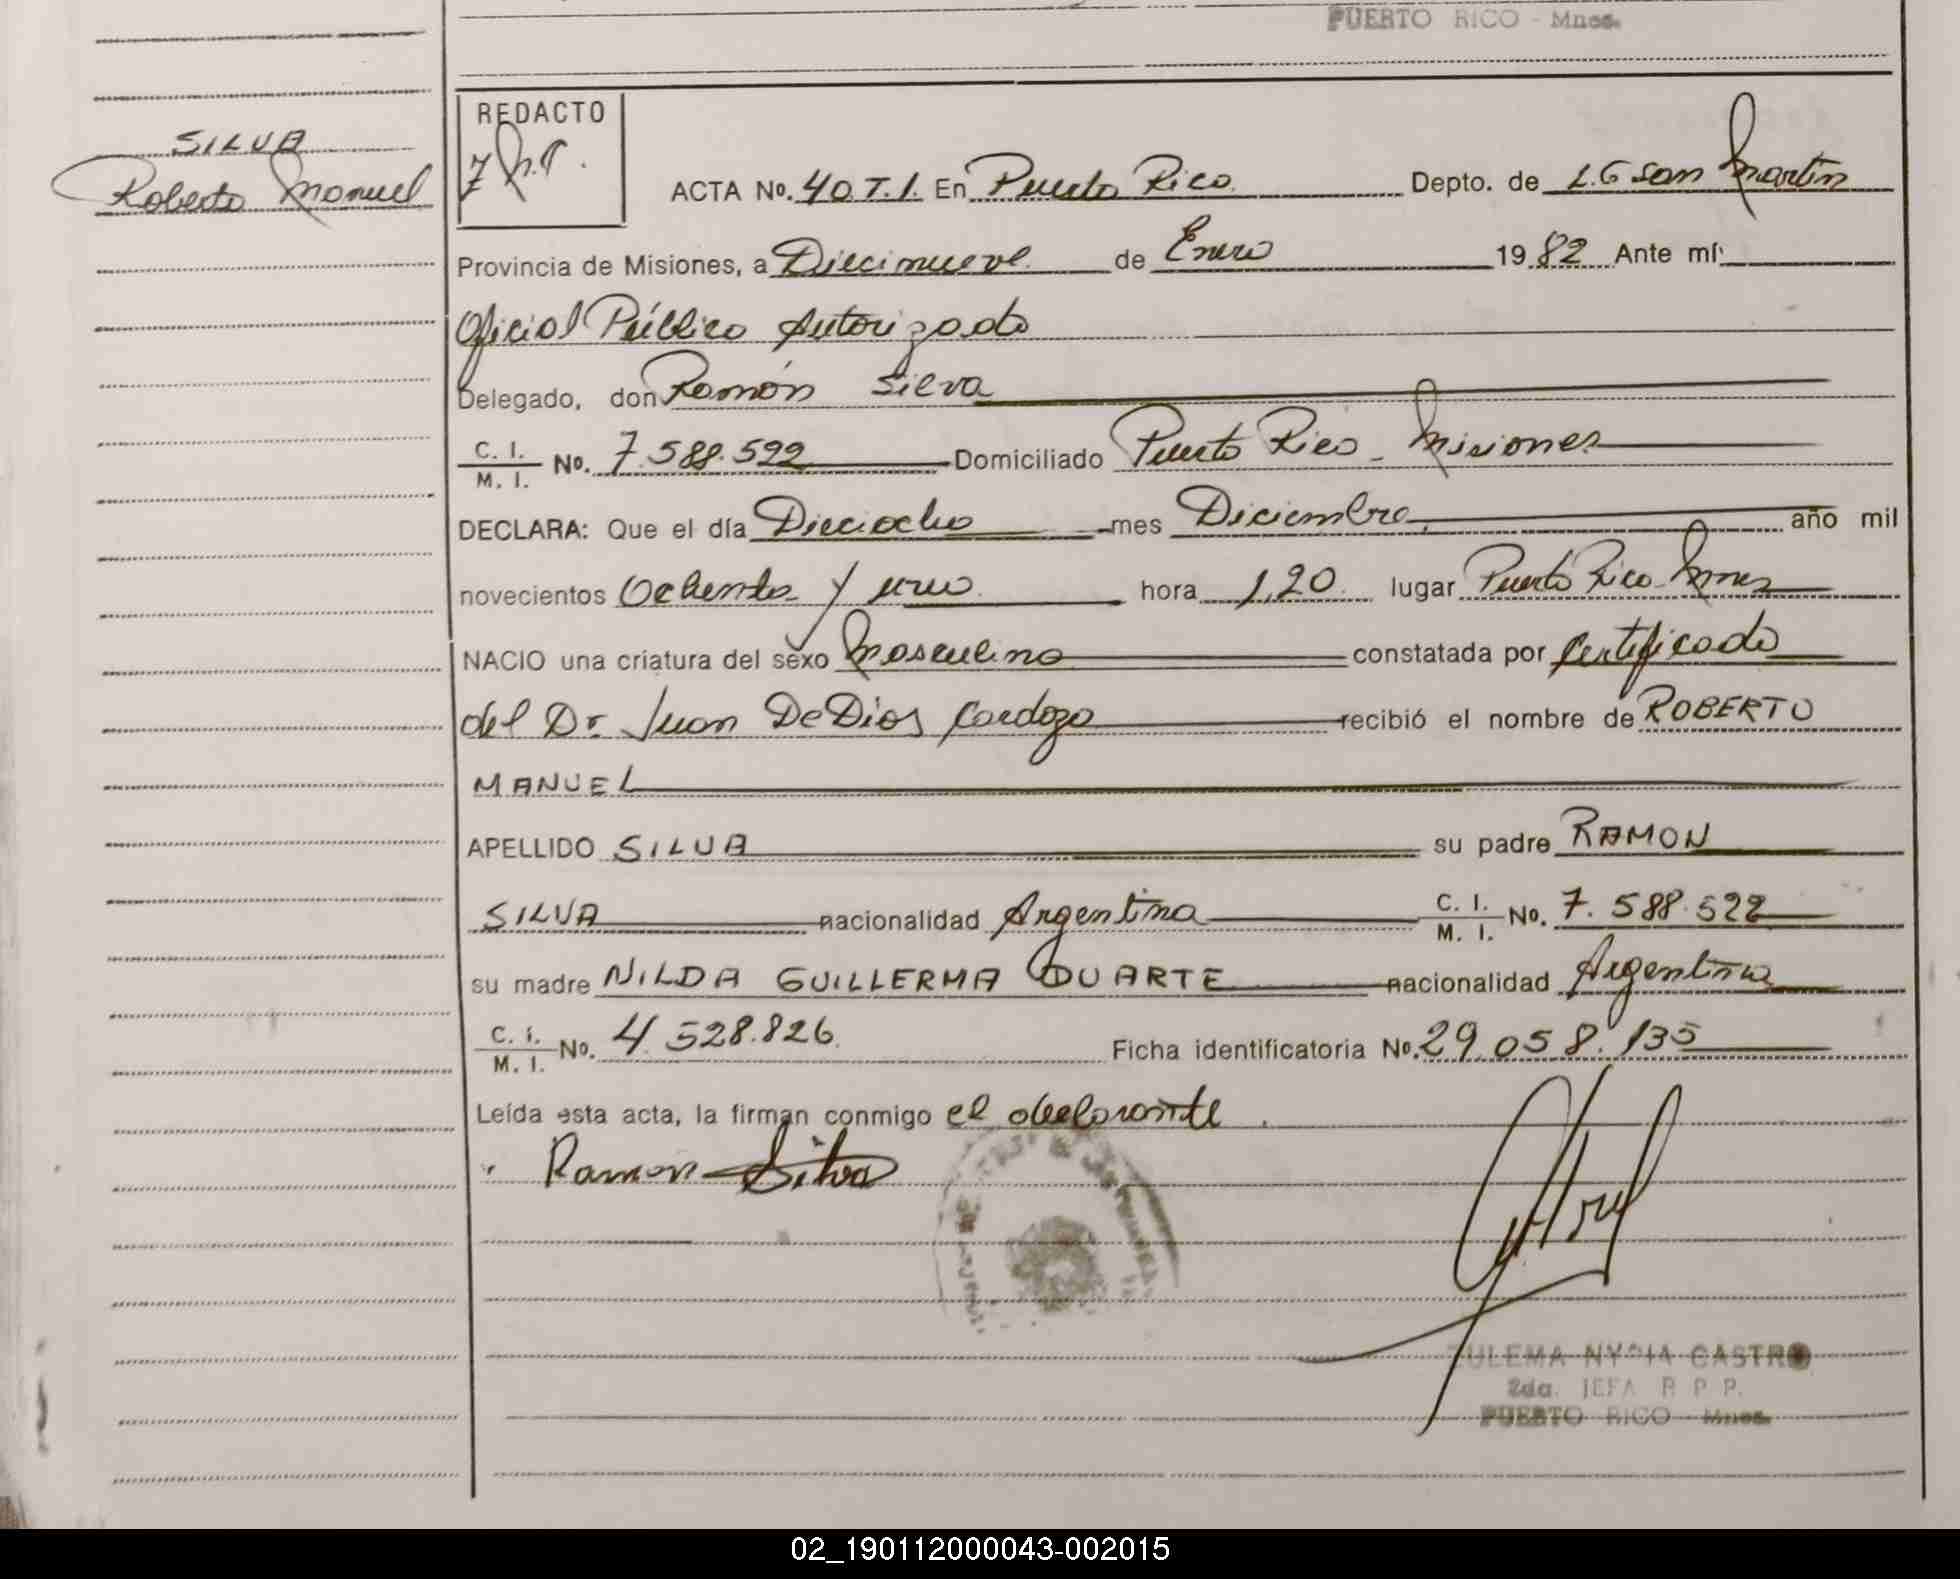 PUERTO RICO - Mnes.
SILVA
Roberto Manuel
REDACTO
ACTA No. 40.T.I. En Puerto Rico Depto. de L.G San Martín
Provincia de Misiones, a Diecinueve de Enero 1982 Ante mí
Oficial Público Autorizado
Delegado, don Ramón Silva
C. I. / M. I. No. 7.588.522 Domiciliado Puerto Rico - Misiones
DECLARA: Que el día Dieciocho mes Diciembre año mil
novecientos Ochenta y uno hora 1,20 lugar Puerto Rico Mnes
NACIO una criatura del sexo Masculino constatada por Certificado
del Dr. Juan De Dios Cardozo recibió el nombre de ROBERTO
MANUEL
APELLIDO SILVA su padre RAMON
SILVA nacionalidad Argentina C. I. / M. I. No. 7.588.522
su madre NILDA GUILLERMA DUARTE nacionalidad Argentina
C. I. / M. I. No. 4.528.826 Ficha identificatoria No. 29.058.135
Leída esta acta, la firman conmigo el declarante.
Ramon Silva
ZULEMA NYDIA CASTRO
2da. JEFA R P P.
PUERTO RICO - Mnes.
02_190112000043-002015